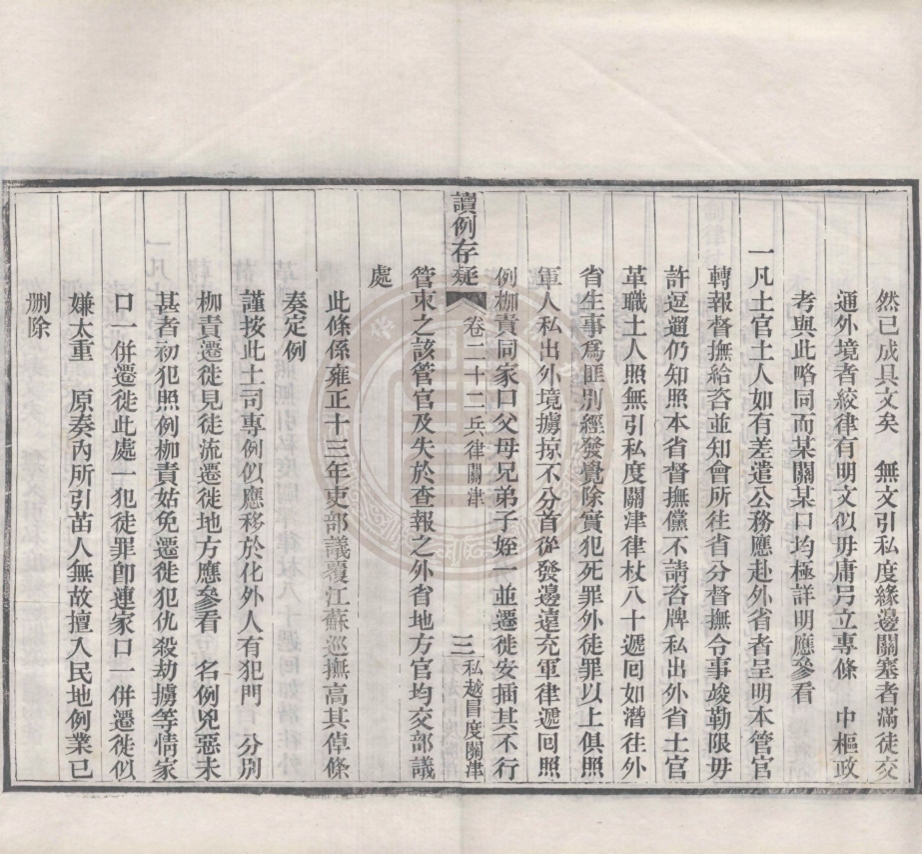 然已成具文矣　無文引私度緣邊關塞者滿徒交
通外境者絞律有明文似毋庸另立專條　中樞政
考與此略同而某關某口均極詳明應參看
一凡土官土人如有差遣公務應赴外省者呈明本管官
轉報督撫給咨並知會所往省分督撫令事竣勒限毋
許逗遛仍知照本省督撫儻不請咨牌私出外省土官
革職土人照無引私度關津律杖八十遞囘如潛往外
省生事爲匪別經發覺除實犯死罪外徒罪以上俱照
軍人私出外境擄掠不分首從發邊遠充軍律遞囘照
例枷責同家口父母兄弟子姪一並遷徙安插其不行
讀例存疑　卷二十二兵律關津　三　私越冒度關津
管束之該管官及失於查報之外省地方官均交部議
處
此條係雍正十三年吏部議覆江蘇巡撫高其倬條
奏定例
謹按此土司專例似應移於化外人有犯門　分別
枷責遷徙見徒流遷徙地方應參看　名例兇惡未
甚者初犯照例枷責姑免遷徙犯仇殺劫擄等情家
口一併遷徙此處一犯徒罪卽連家口一併遷徙似
嫌太重　原奏內所引苗人無故擅入民地例業已
刪除